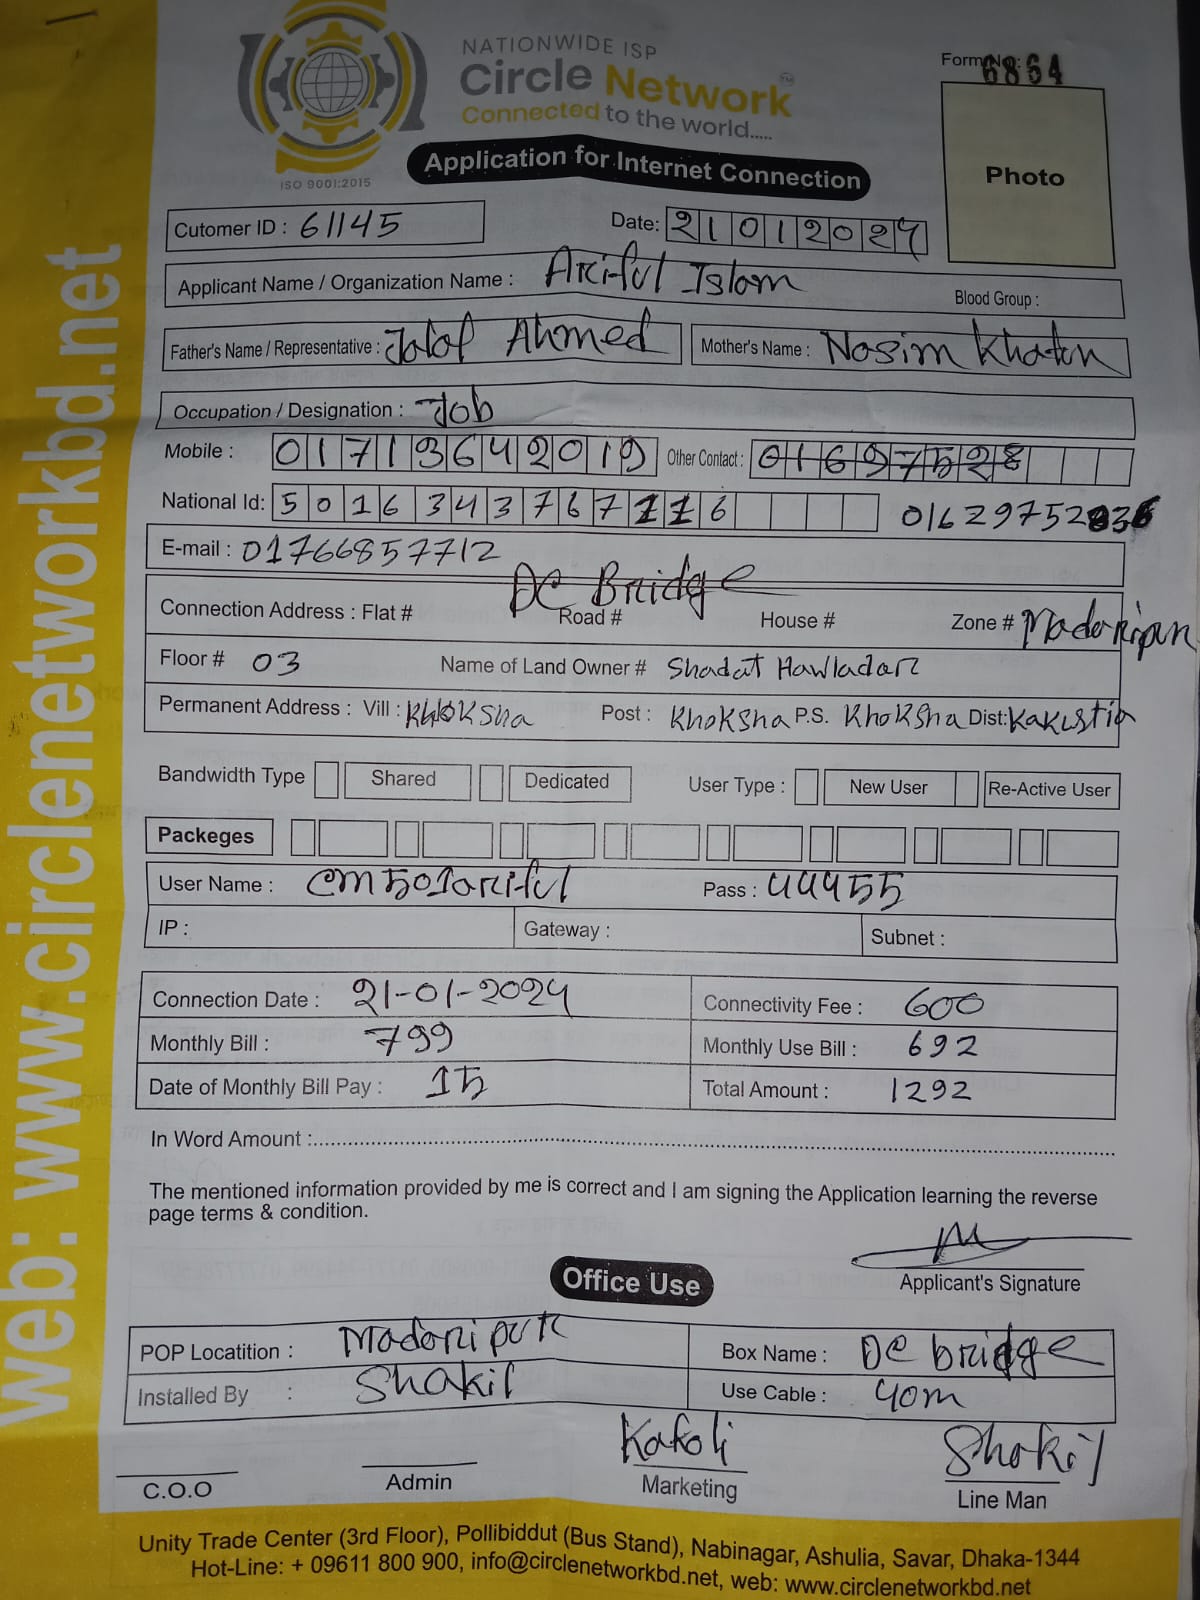 NATIONWIDE ISP
Circle Network™
Connected to the world.....
ISO 9001:2015
Form No: 6864
Photo
Application for Internet Connection
Cutomer ID : 61145
Date: 21012024
Applicant Name / Organization Name : Ariful Islam
Blood Group :
Father's Name / Representative : Jalal Ahmed
Mother's Name : Nasim Khaton
Occupation / Designation : Job
Mobile : 01713642019
Other Contact : 01697528
National Id: 5016343767116
E-mail : 01766857712
DC Bridge
Connection Address : Flat # Road # House # Zone # Madaripur
Floor # 03 Name of Land Owner # Shadat Hawladar
Permanent Address : Vill : Khoksha Post : Khoksha P.S. Khoksha Dist: Kakustia
Bandwidth Type Shared Dedicated User Type : New User Re-Active User
Packeges
User Name : cm501ariful Pass : 44455
IP : Gateway : Subnet :
Connection Date : 21-01-2024 Connectivity Fee : 600
Monthly Bill : 799 Monthly Use Bill : 692
Date of Monthly Bill Pay : 15 Total Amount : 1292
In Word Amount :
The mentioned information provided by me is correct and I am signing the Application learning the reverse
page terms & condition.
Applicant's Signature
Office Use
POP Locatition : Madaripur Box Name : DC bridge
Installed By : Shakil Use Cable : 40m
Kakoli Shakil
C.O.O Admin Marketing Line Man
Unity Trade Center (3rd Floor), Pollibiddut (Bus Stand), Nabinagar, Ashulia, Savar, Dhaka-1344
Hot-Line: + 09611 800 900, info@circlenetworkbd.net, web: www.circlenetworkbd.net
web: www.circlenetworkbd.net